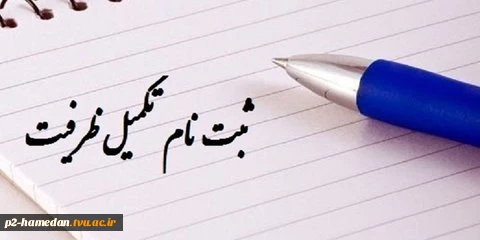 ثبت نام تکمیل ظرفیت
p2-hamedan.tvu.ac.ir